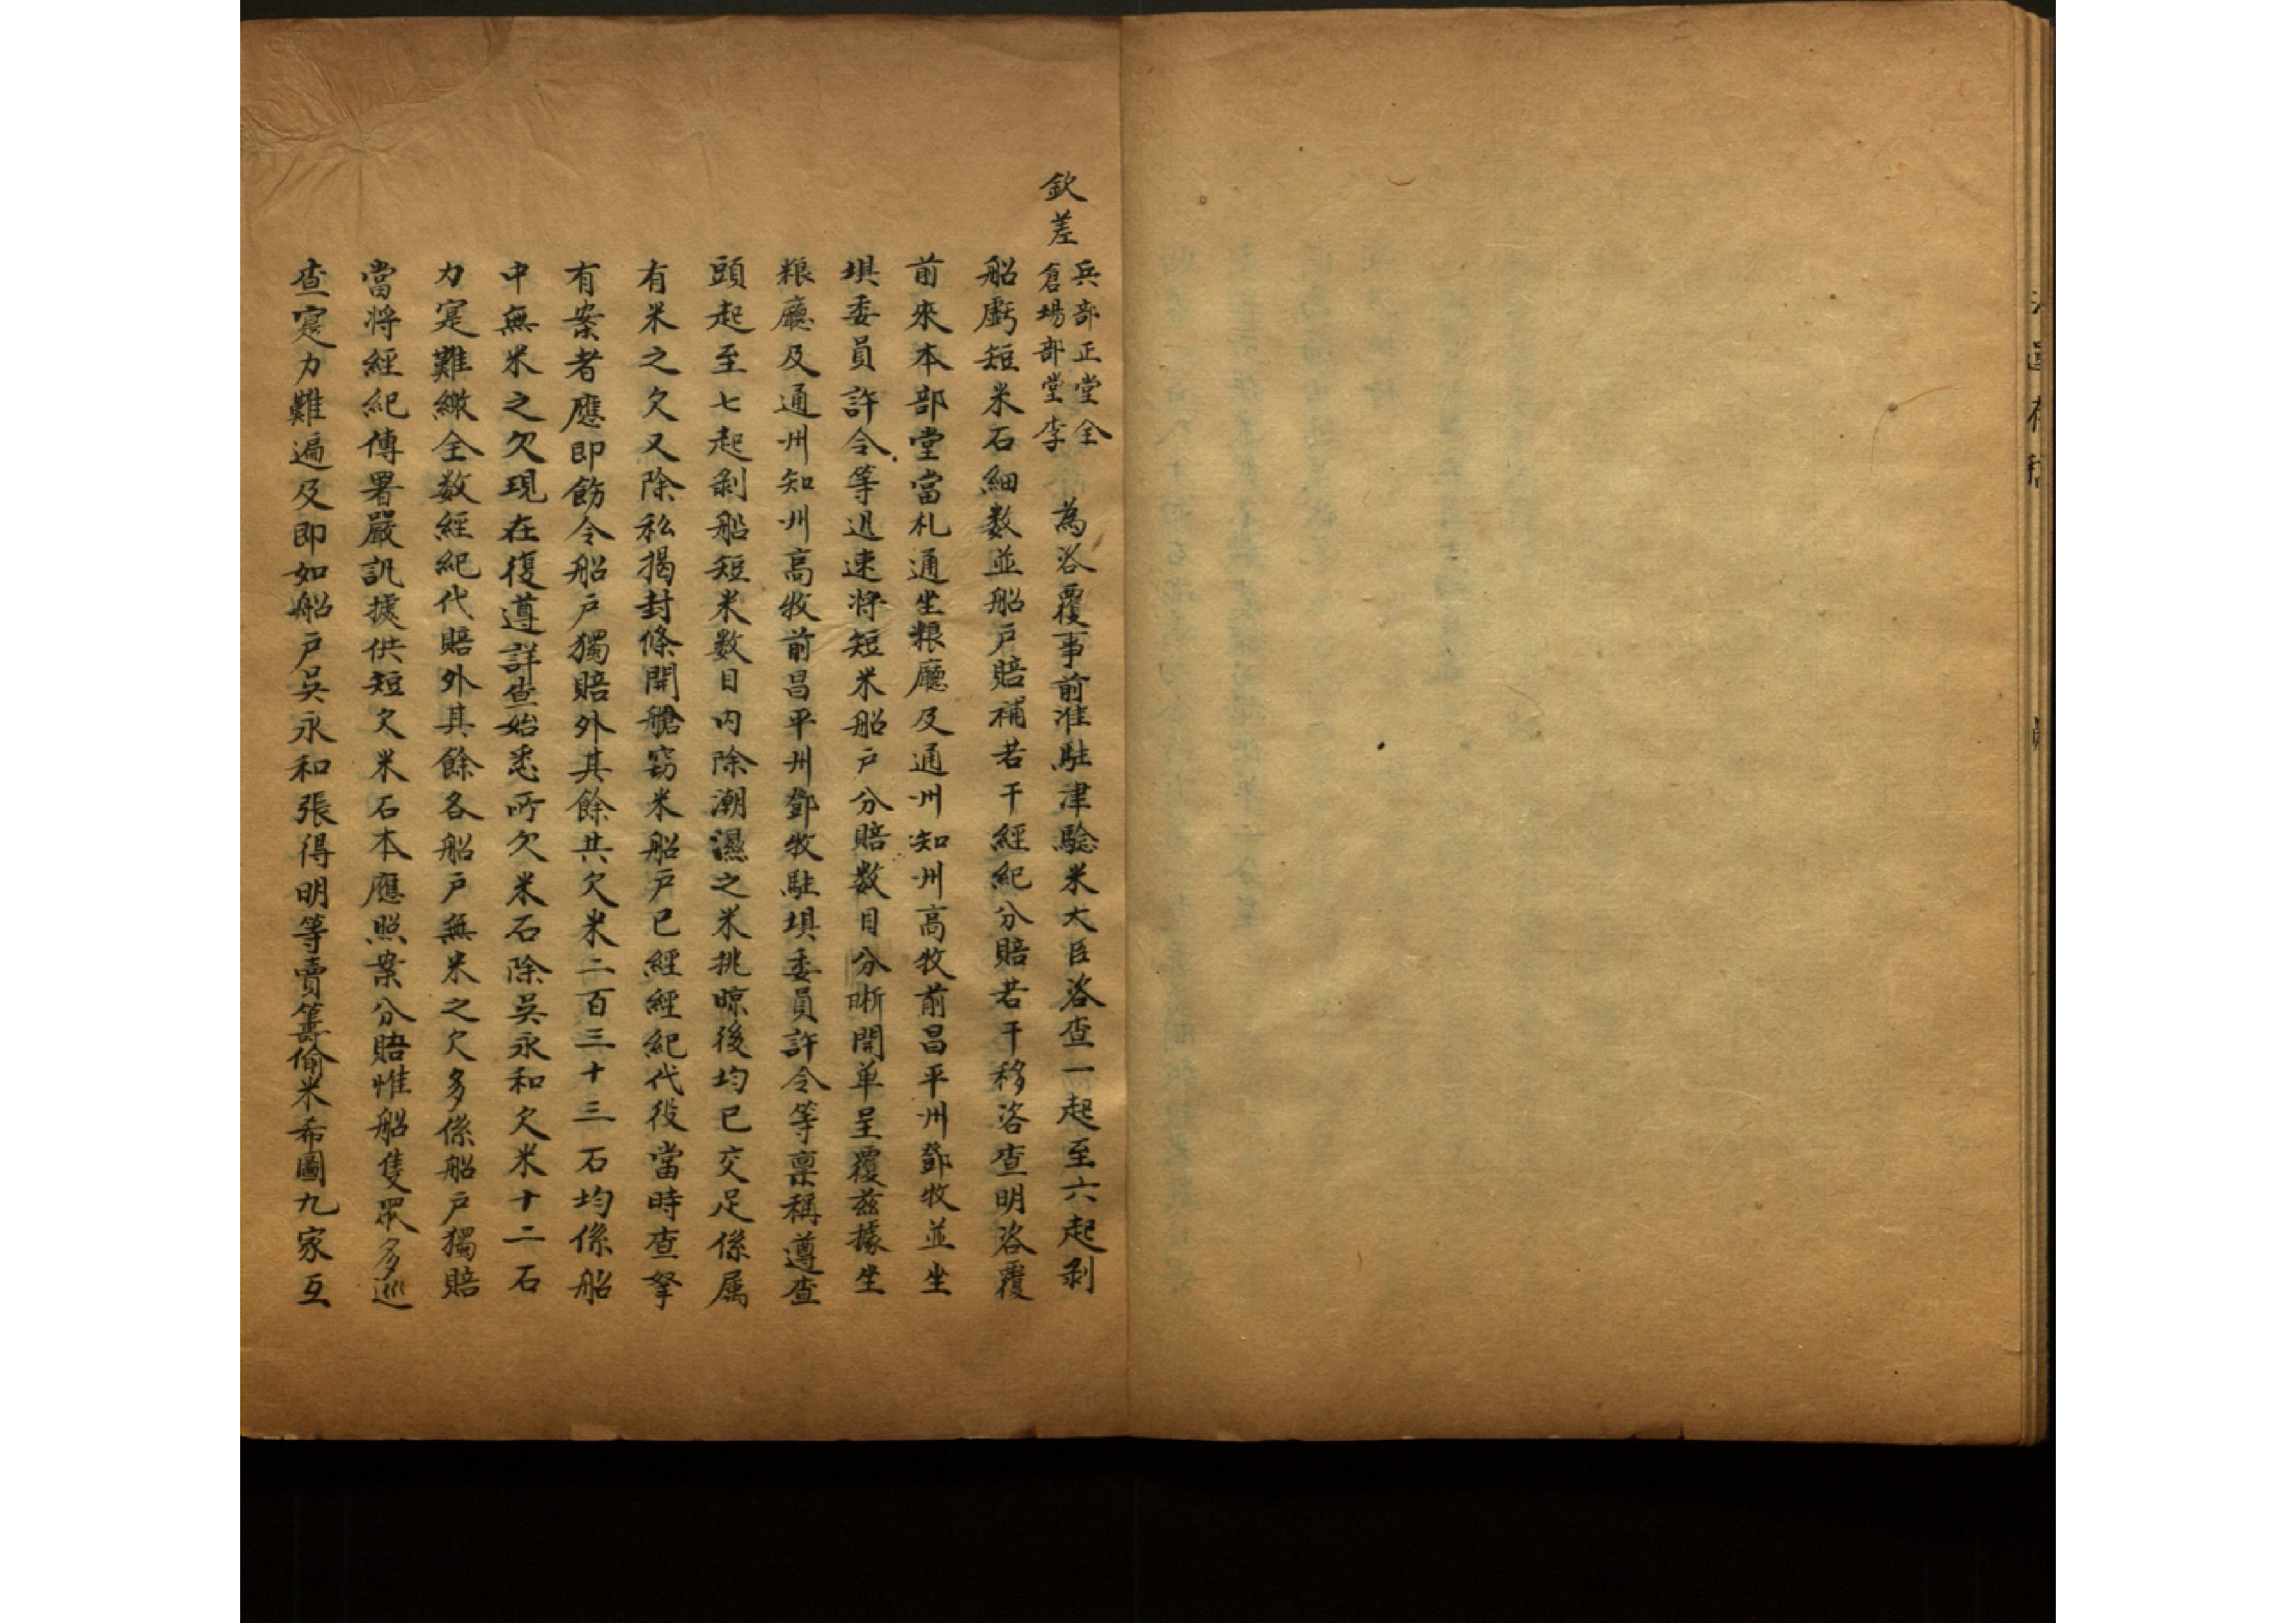 欽差兵部正堂全倉場部堂李 為咨覆事前准駐津驗米大臣咨查一起至六起剝
船虧短米石細数並船戶賠補若干經紀分賠若干移咨查明咨覆
前來本部堂當札通坐粮廳及通州知州高牧前昌平州鄧牧並坐
埧委員許令等迅速將短米船戶分賠数目分晰開单呈覆茲據坐
粮廳及通州知州高牧前昌平州鄧牧駐埧委員許令等稟稱遵查
頭起至七起剝船短米数目內除潮濕之米挑晾後均已交足係属
有米之欠又除私揭封條開艙窃米船戶已經經紀代役當時查拏
有案者應即飭令船戶獨賠外其餘共欠米二百三十三石均係船
中無米之欠現在復遵詳查始悉所欠米石除吳永和欠米十二石
力寔難繳全数經紀代賠外其餘各船戶無米之欠多係船戶獨賠
當將經紀傳署嚴訊據供短欠米石本應照案分賠惟船隻眾多巡
查寔力難遍及即如船戶吳永和張得明等賣籌偷米希圖九家互